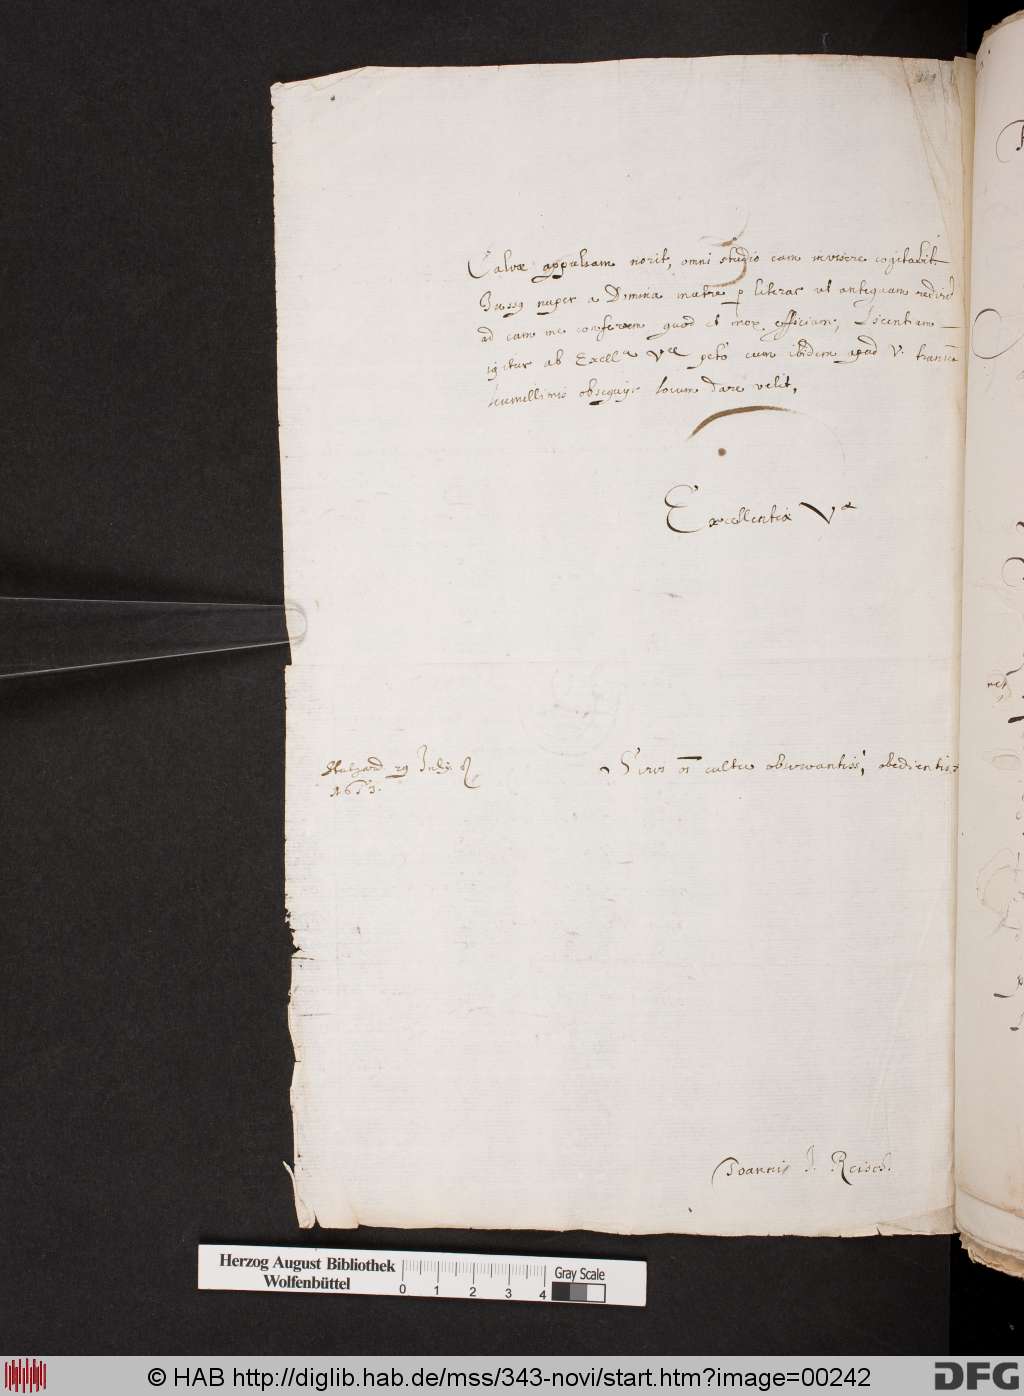 Calvæ appulsam norit, omni studio eam invisere cogitabit
Jussq nuper a Domina matre p literas ut antequam
ad eam me conferrem quod et mox efficiam, Licentiam
igitur ab Excell.ᵃ Vᵃ peto cum ibidem apud V.
humillimis obsequijs locum dare velit,
Excellentiæ Vᵃ
Stutgard 29 Julij
1653.
cultu observantiss, obedientiss
Joannis J. Reisch.
Herzog August Bibliothek
Wolfenbüttel
0 1 2 3 4
Gray Scale
© HAB http://diglib.hab.de/mss/343-novi/start.htm?image=00242
DFG